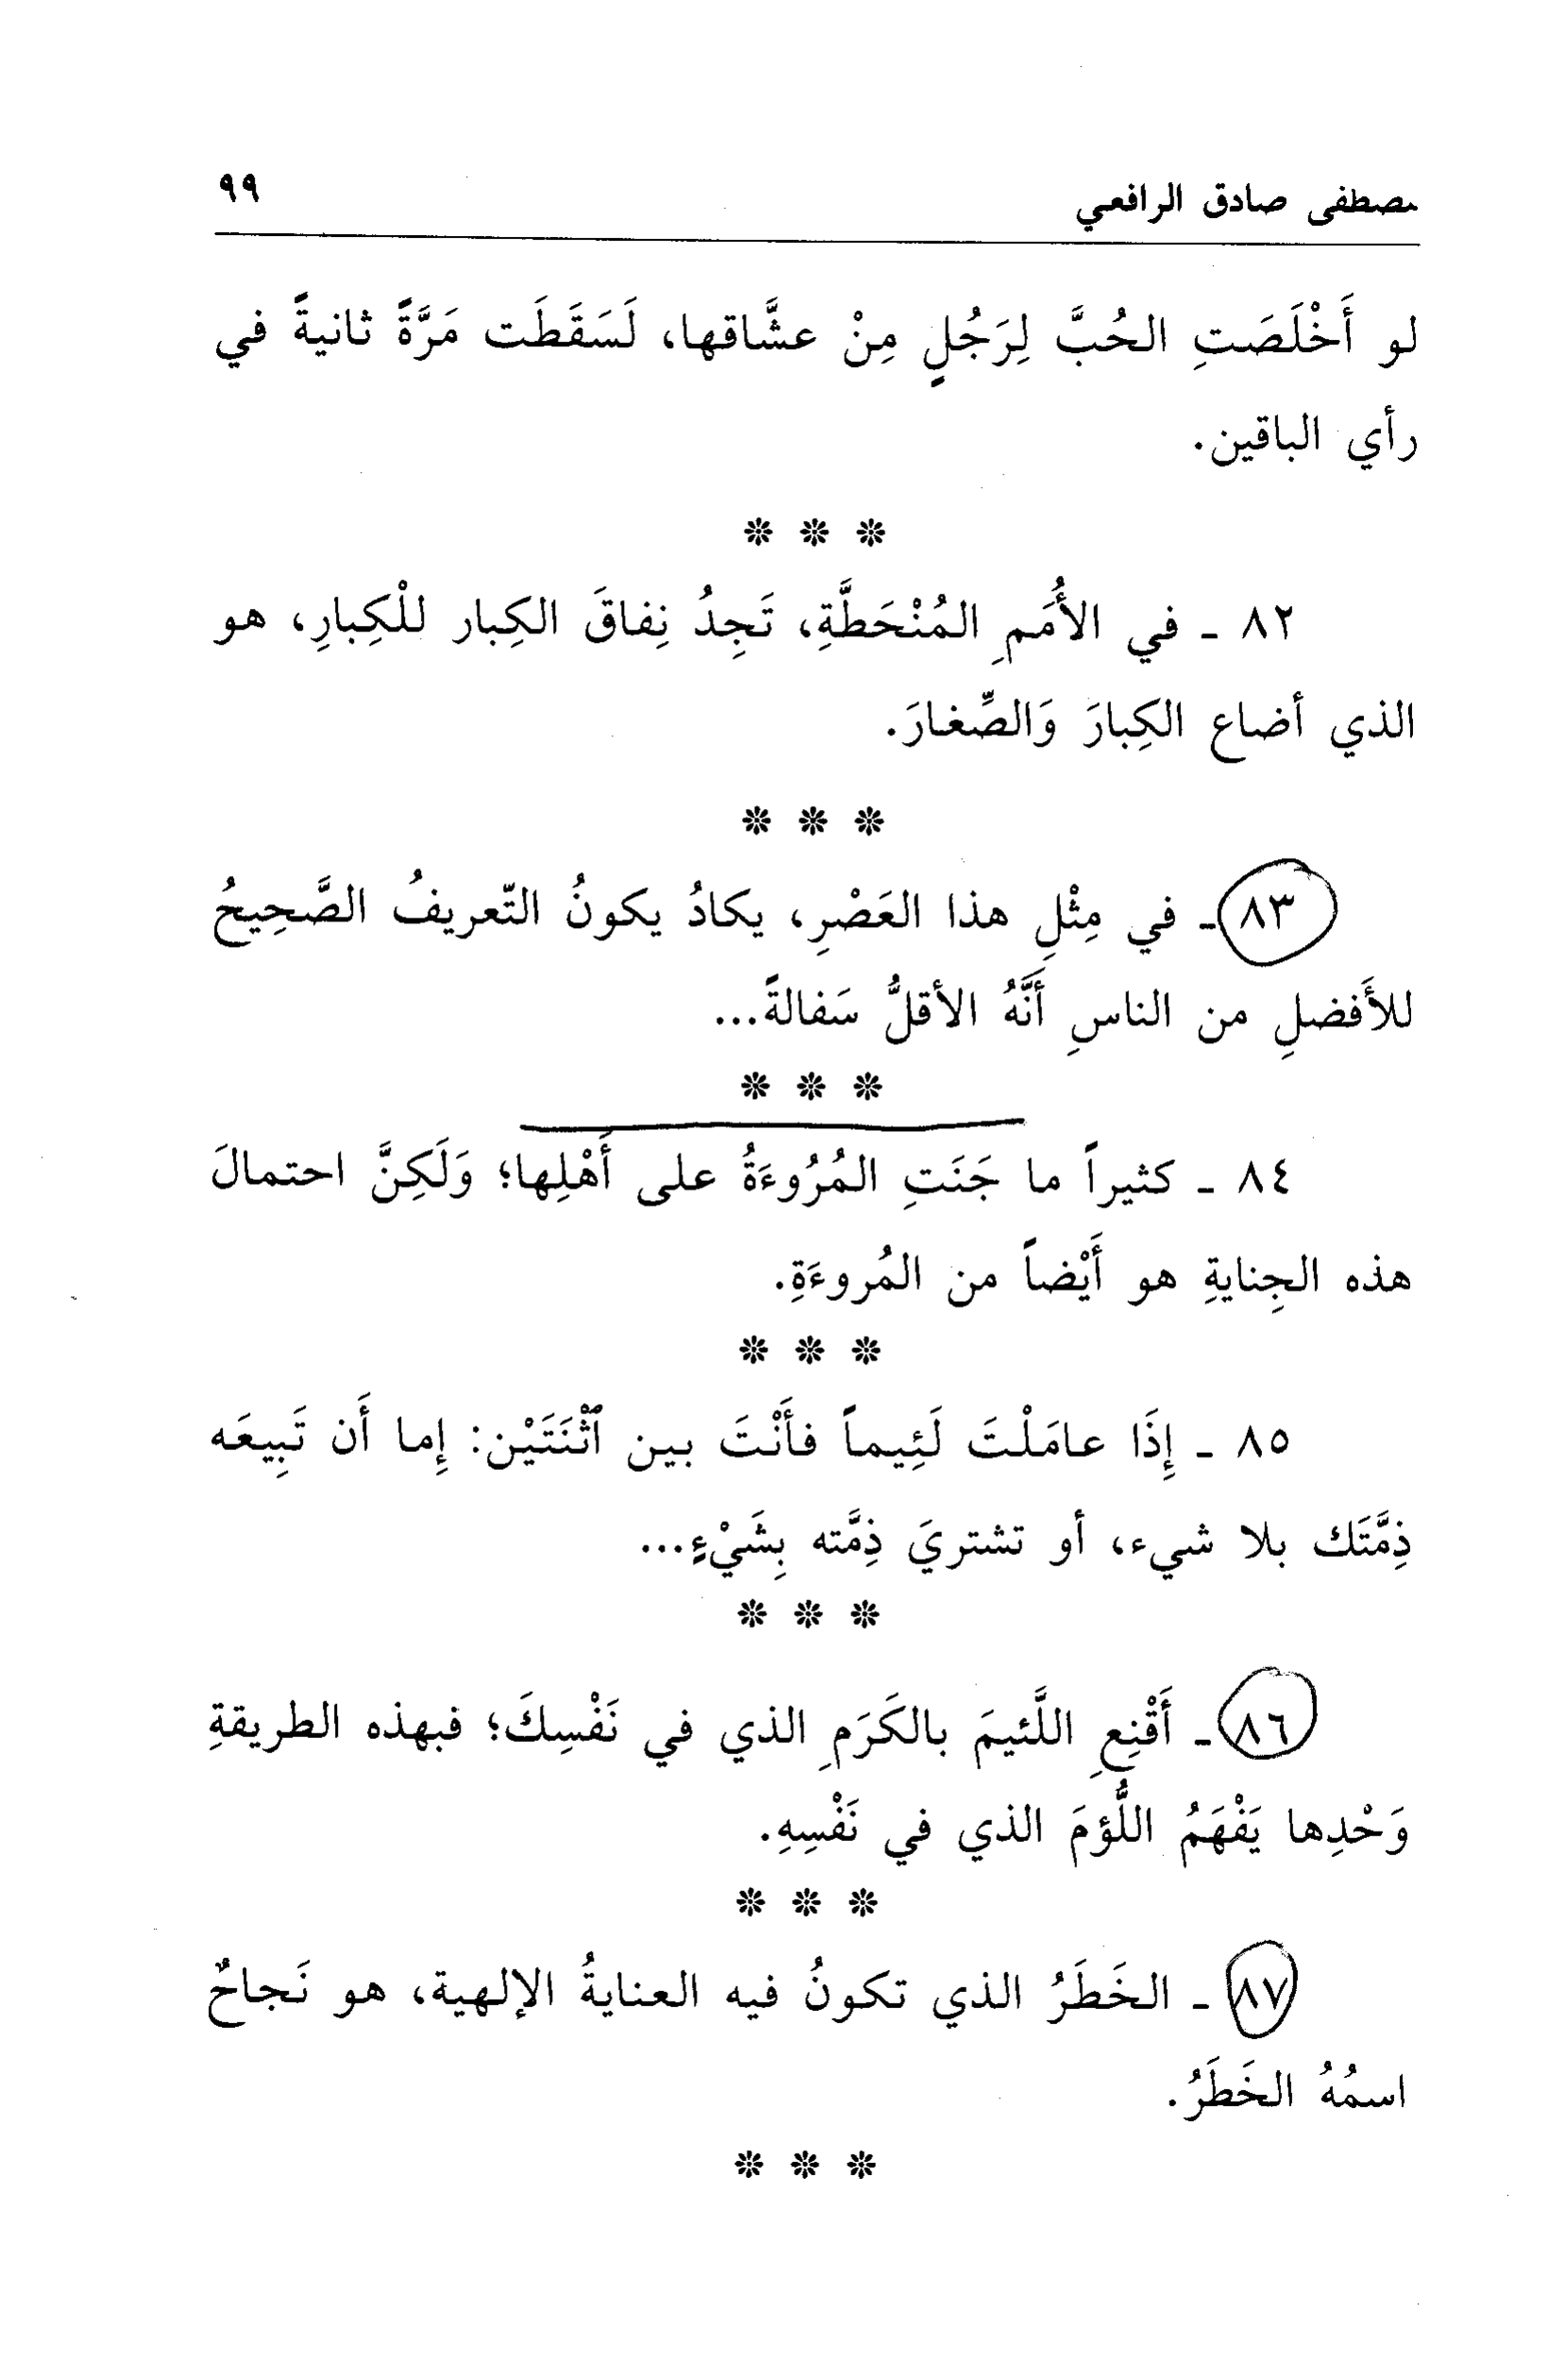 مصطفى صادق الرافعي ٩٩
لو أَخْلَصَتِ الحُبَّ لِرَجُلٍ مِنْ عشَّاقها، لَسَقَطَت مَرَّةً ثانيةً في
رأي الباقين.
* * *
٨٢ ـ في الأُمَمِ المُنْحَطَّةِ، تَجِدُ نِفاقَ الكِبار للْكِبارِ، هو
الذي أضاع الكِبارَ وَالصِّغارَ.
* * *
٨٣ ـ في مِثْلِ هذا العَصْرِ، يكادُ يكونُ التّعريفُ الصَّحِيحُ
للأَفضلِ من الناسِ أَنَّهُ الأقلُّ سَفالةً...
* * *
٨٤ ـ كثيراً ما جَنَتِ المُرُوءَةُ على أَهْلِها؛ وَلَكِنَّ احتمالَ
هذه الجِنايةِ هو أَيْضاً من المُروءَةِ.
* * *
٨٥ ـ إِذَا عامَلْتَ لَئِيماً فأَنْتَ بين ٱثْنَتَيْن: إِما أَن تَبِيعَه
ذِمَّتَك بلا شيء، أو تشتريَ ذِمَّته بِشَيْءٍ...
* * *
٨٦ ـ أَقْنِعِ اللَّئيمَ بالكَرَمِ الذي في نَفْسِكَ؛ فبهذه الطريقةِ
وَحْدِها يَفْهَمُ اللُّؤمَ الذي في نَفْسِهِ.
* * *
٨٧ ـ الخَطَرُ الذي تكونُ فيه العنايةُ الإلهية، هو نَجاحٌ
اسمُهُ الخَطَرُ.
* * *